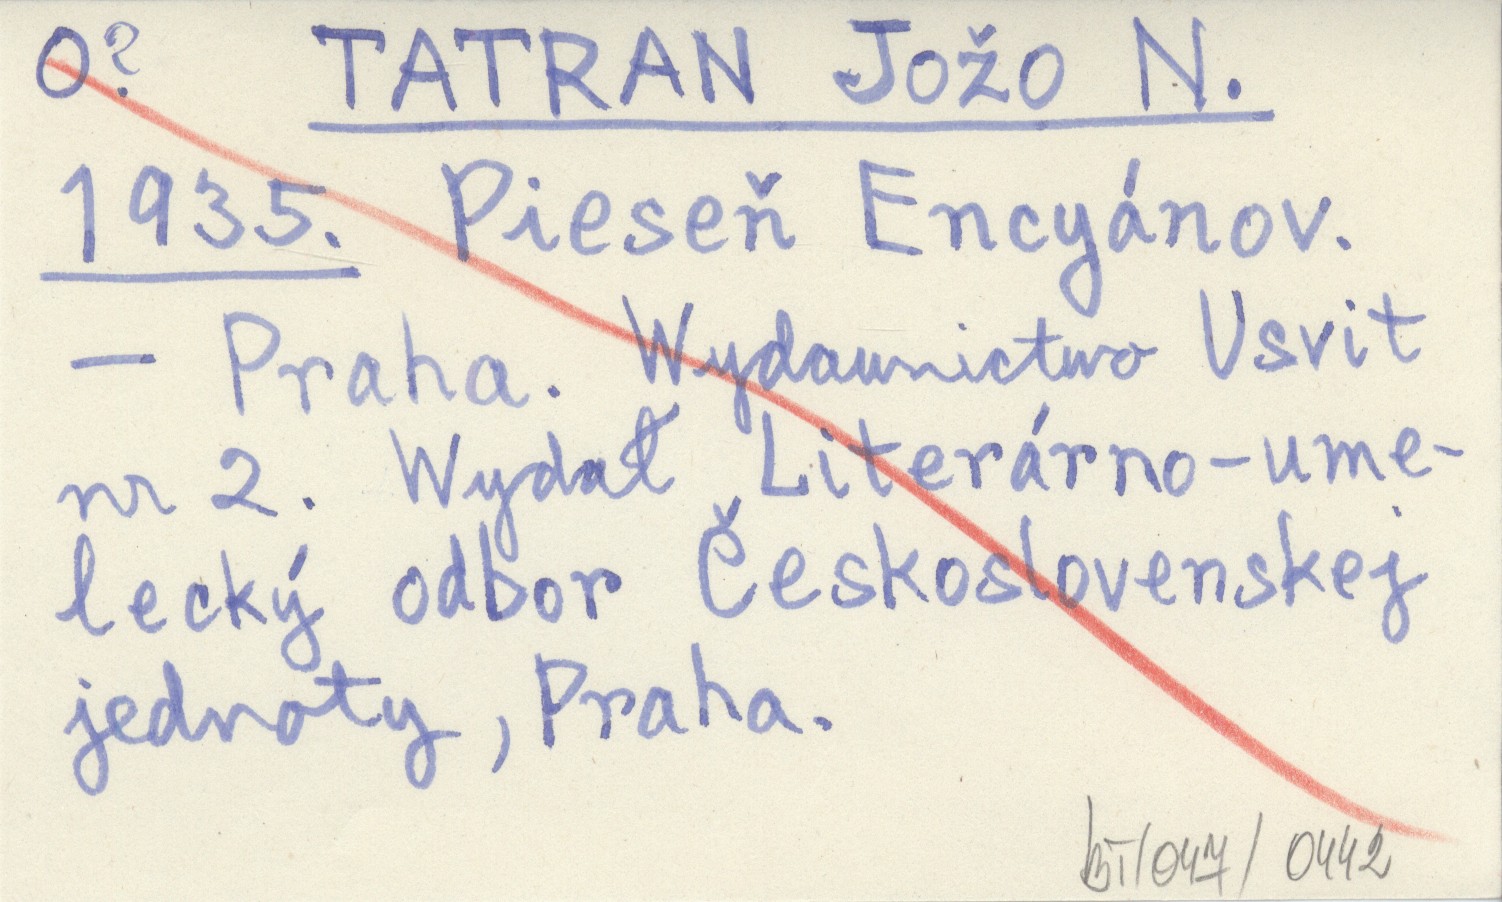 O? TATRAN Jožo N.
1935. Pieseň Encyánov.
— Praha. Wydawnictwo Usvit
nr 2. Wydał Literárno-ume-
lecký odbor Československej
jednoty, Praha.
BT/047/0442